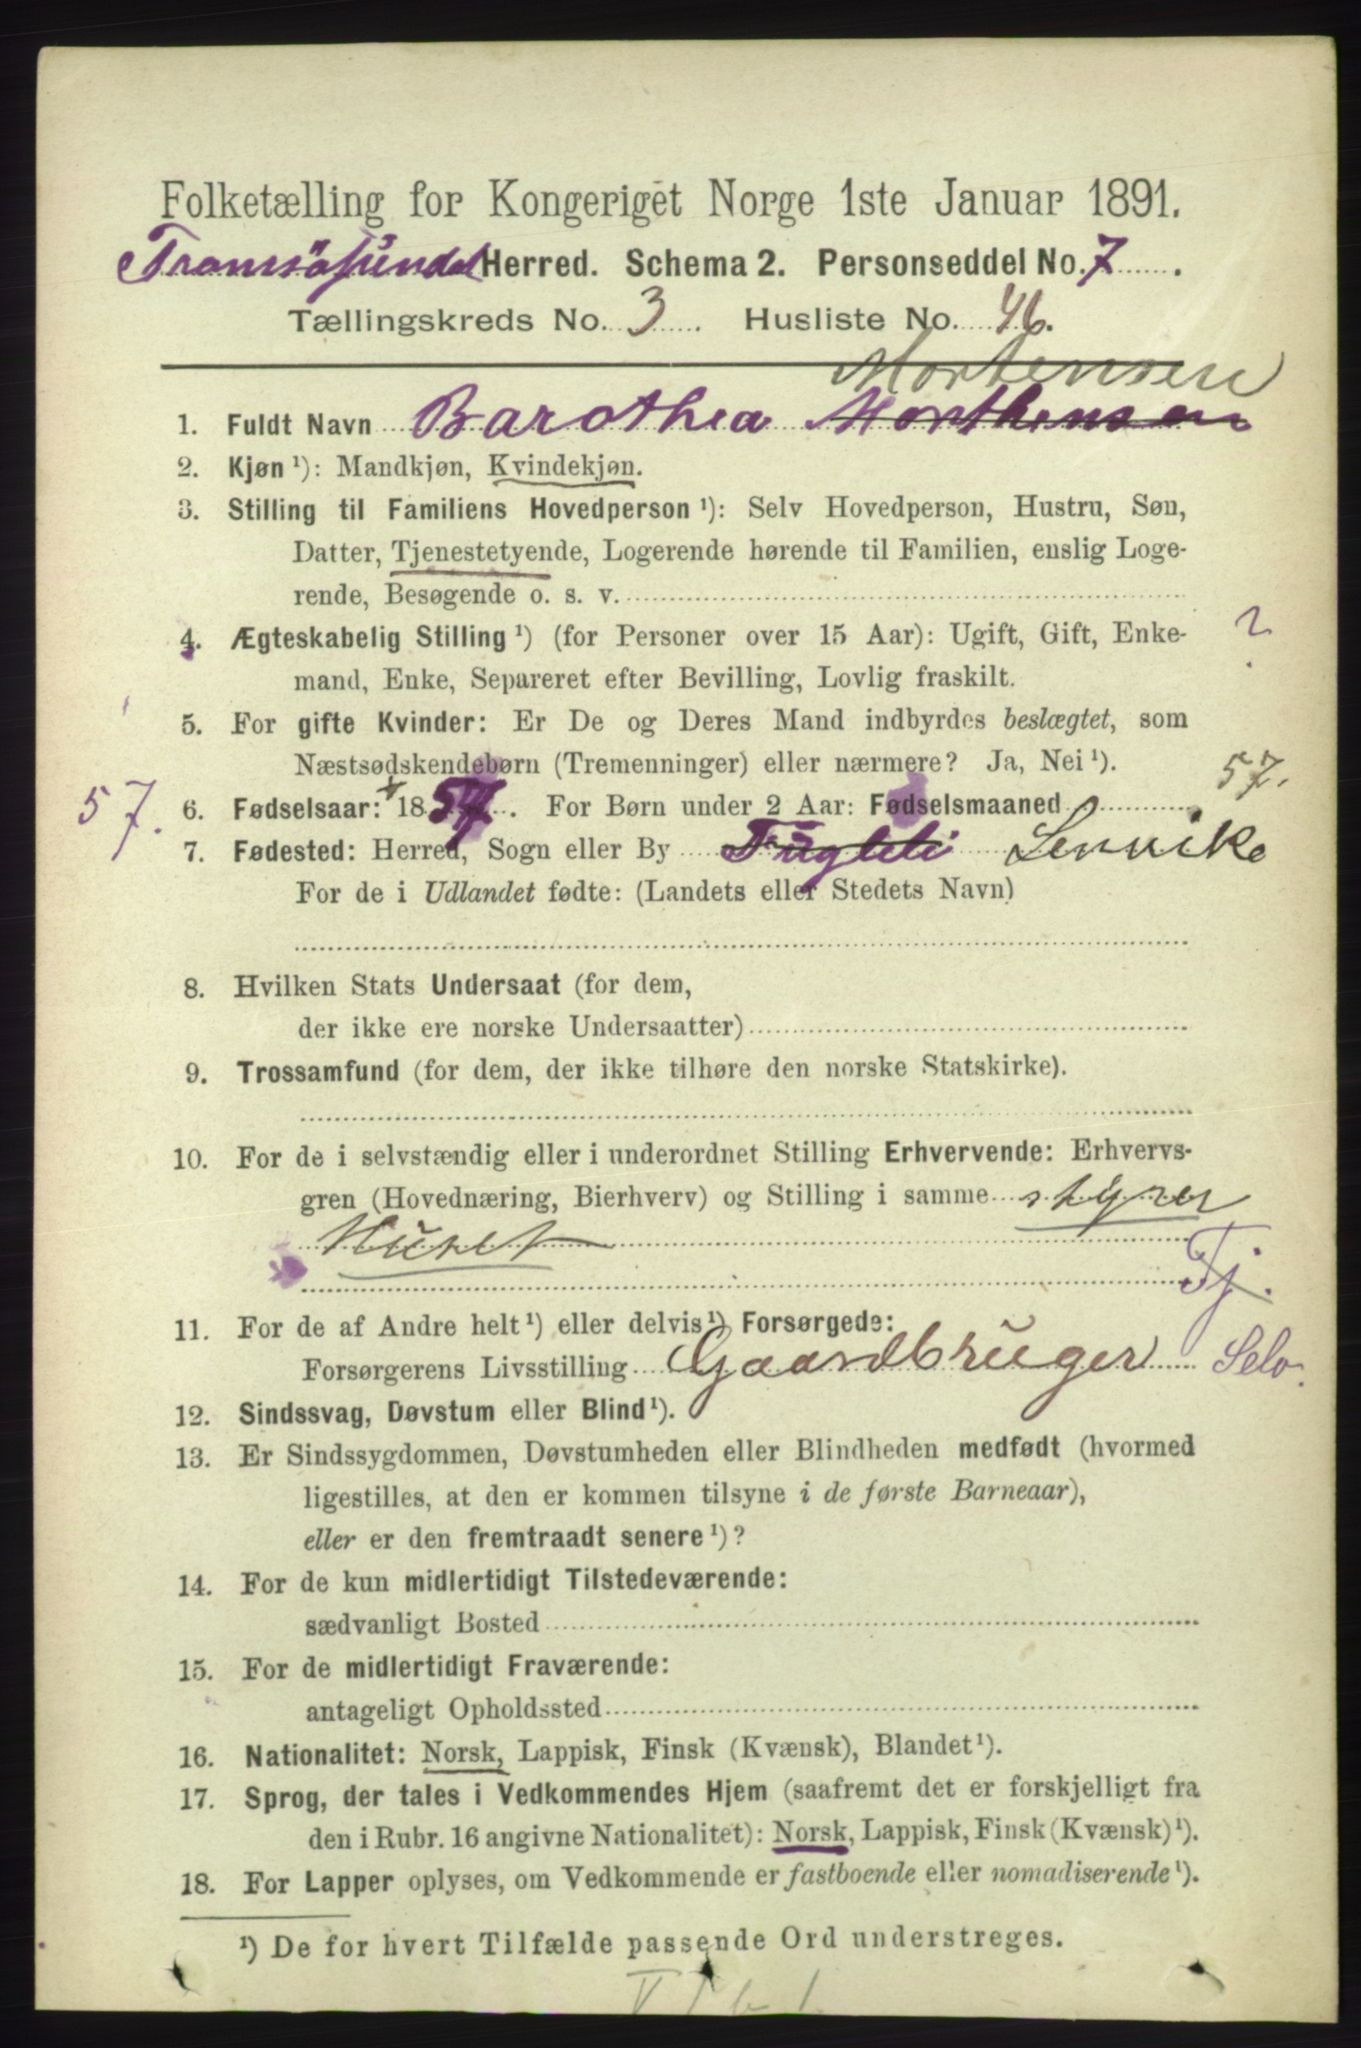 Folketælling for Kongeriget Norge 1ste Januar 1891.
Tromsøsundet Herred. Schema 2. Personseddel No. 7.
Tællingskreds No. 3 Husliste No. 46.
Mortensen
1. Fuldt Navn Barothea Morthensen
2. Kjøn ¹): Mandkjøn, Kvindekjøn.
3. Stilling til Familiens Hovedperson ¹): Selv Hovedperson, Hustru, Søn,
Datter, Tjenestetyende, Logerende hørende til Familien, enslig Loge-
rende, Besøgende o. s. v.
4. Ægteskabelig Stilling ¹) (for Personer over 15 Aar): Ugift, Gift, Enke- ?
mand, Enke, Separeret efter Bevilling, Lovlig fraskilt.
5. For gifte Kvinder: Er De og Deres Mand indbyrdes beslægtet, som
Næstsødskendebørn (Tremenninger) eller nærmere? Ja, Nei ¹). 57.
57. 6. Fødselsaar: 1857. For Børn under 2 Aar: Fødselsmaaned
7. Fødested: Herred, Sogn eller By Fugleli Lenvike
For de i Udlandet fødte: (Landets eller Stedets Navn)
8. Hvilken Stats Undersaat (for dem,
der ikke ere norske Undersaatter)
9. Trossamfund (for dem, der ikke tilhøre den norske Statskirke).
10. For de i selvstændig eller i underordnet Stilling Erhvervende: Erhvervs-
gren (Hovednæring, Bierhverv) og Stilling i samme styrer
Huset
Tj.
11. For de af Andre helt ¹) eller delvis ¹) Forsørgede:
Forsørgerens Livsstilling Gaardbruger Selv.
12. Sindssvag, Døvstum eller Blind ¹).
13. Er Sindssygdommen, Døvstumheden eller Blindheden medfødt (hvormed
ligestilles, at den er kommen tilsyne i de første Barneaar),
eller er den fremtraadt senere ¹)?
14. For de kun midlertidigt Tilstedeværende:
sædvanligt Bosted
15. For de midlertidigt Fraværende:
antageligt Opholdssted
16. Nationalitet: Norsk, Lappisk, Finsk (Kvænsk), Blandet ¹).
17. Sprog, der tales i Vedkommendes Hjem (saafremt det er forskjelligt fra
den i Rubr. 16 angivne Nationalitet): Norsk, Lappisk, Finsk (Kvænsk) ¹).
18. For Lapper oplyses, om Vedkommende er fastboende eller nomadiserende ¹).
¹) De for hvert Tilfælde passende Ord understreges.